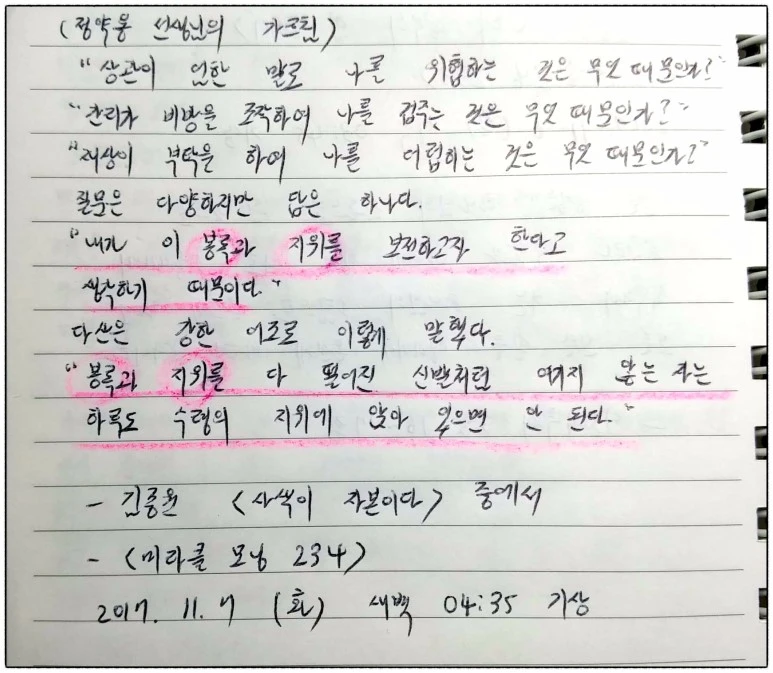 (정약용 선생님의 가르침)
"상관이 엄한 말로 나를 위협하는 것은 무엇 때문인가?"
"간리가 비방을 조작하여 나를 겁주는 것은 무엇 때문인가?"
"재상이 부탁을 하여 나를 더럽히는 것은 무엇 때문인가?"
질문은 다양하지만 답은 하나다.
"내가 이 봉록과 지위를 보전하고자 한다고
생각하기 때문이다."
다산은 강한 어조로 이렇게 말했다.
"봉록과 지위를 다 떨어진 신발처럼 여기지 않는 자는
하루도 수령의 지위에 앉아 있으면 안 된다."
- 김종원 <사색이 자본이다> 중에서
- <미라클 모닝 234>
2017. 11. 7 (화) 새벽 04:35 기상